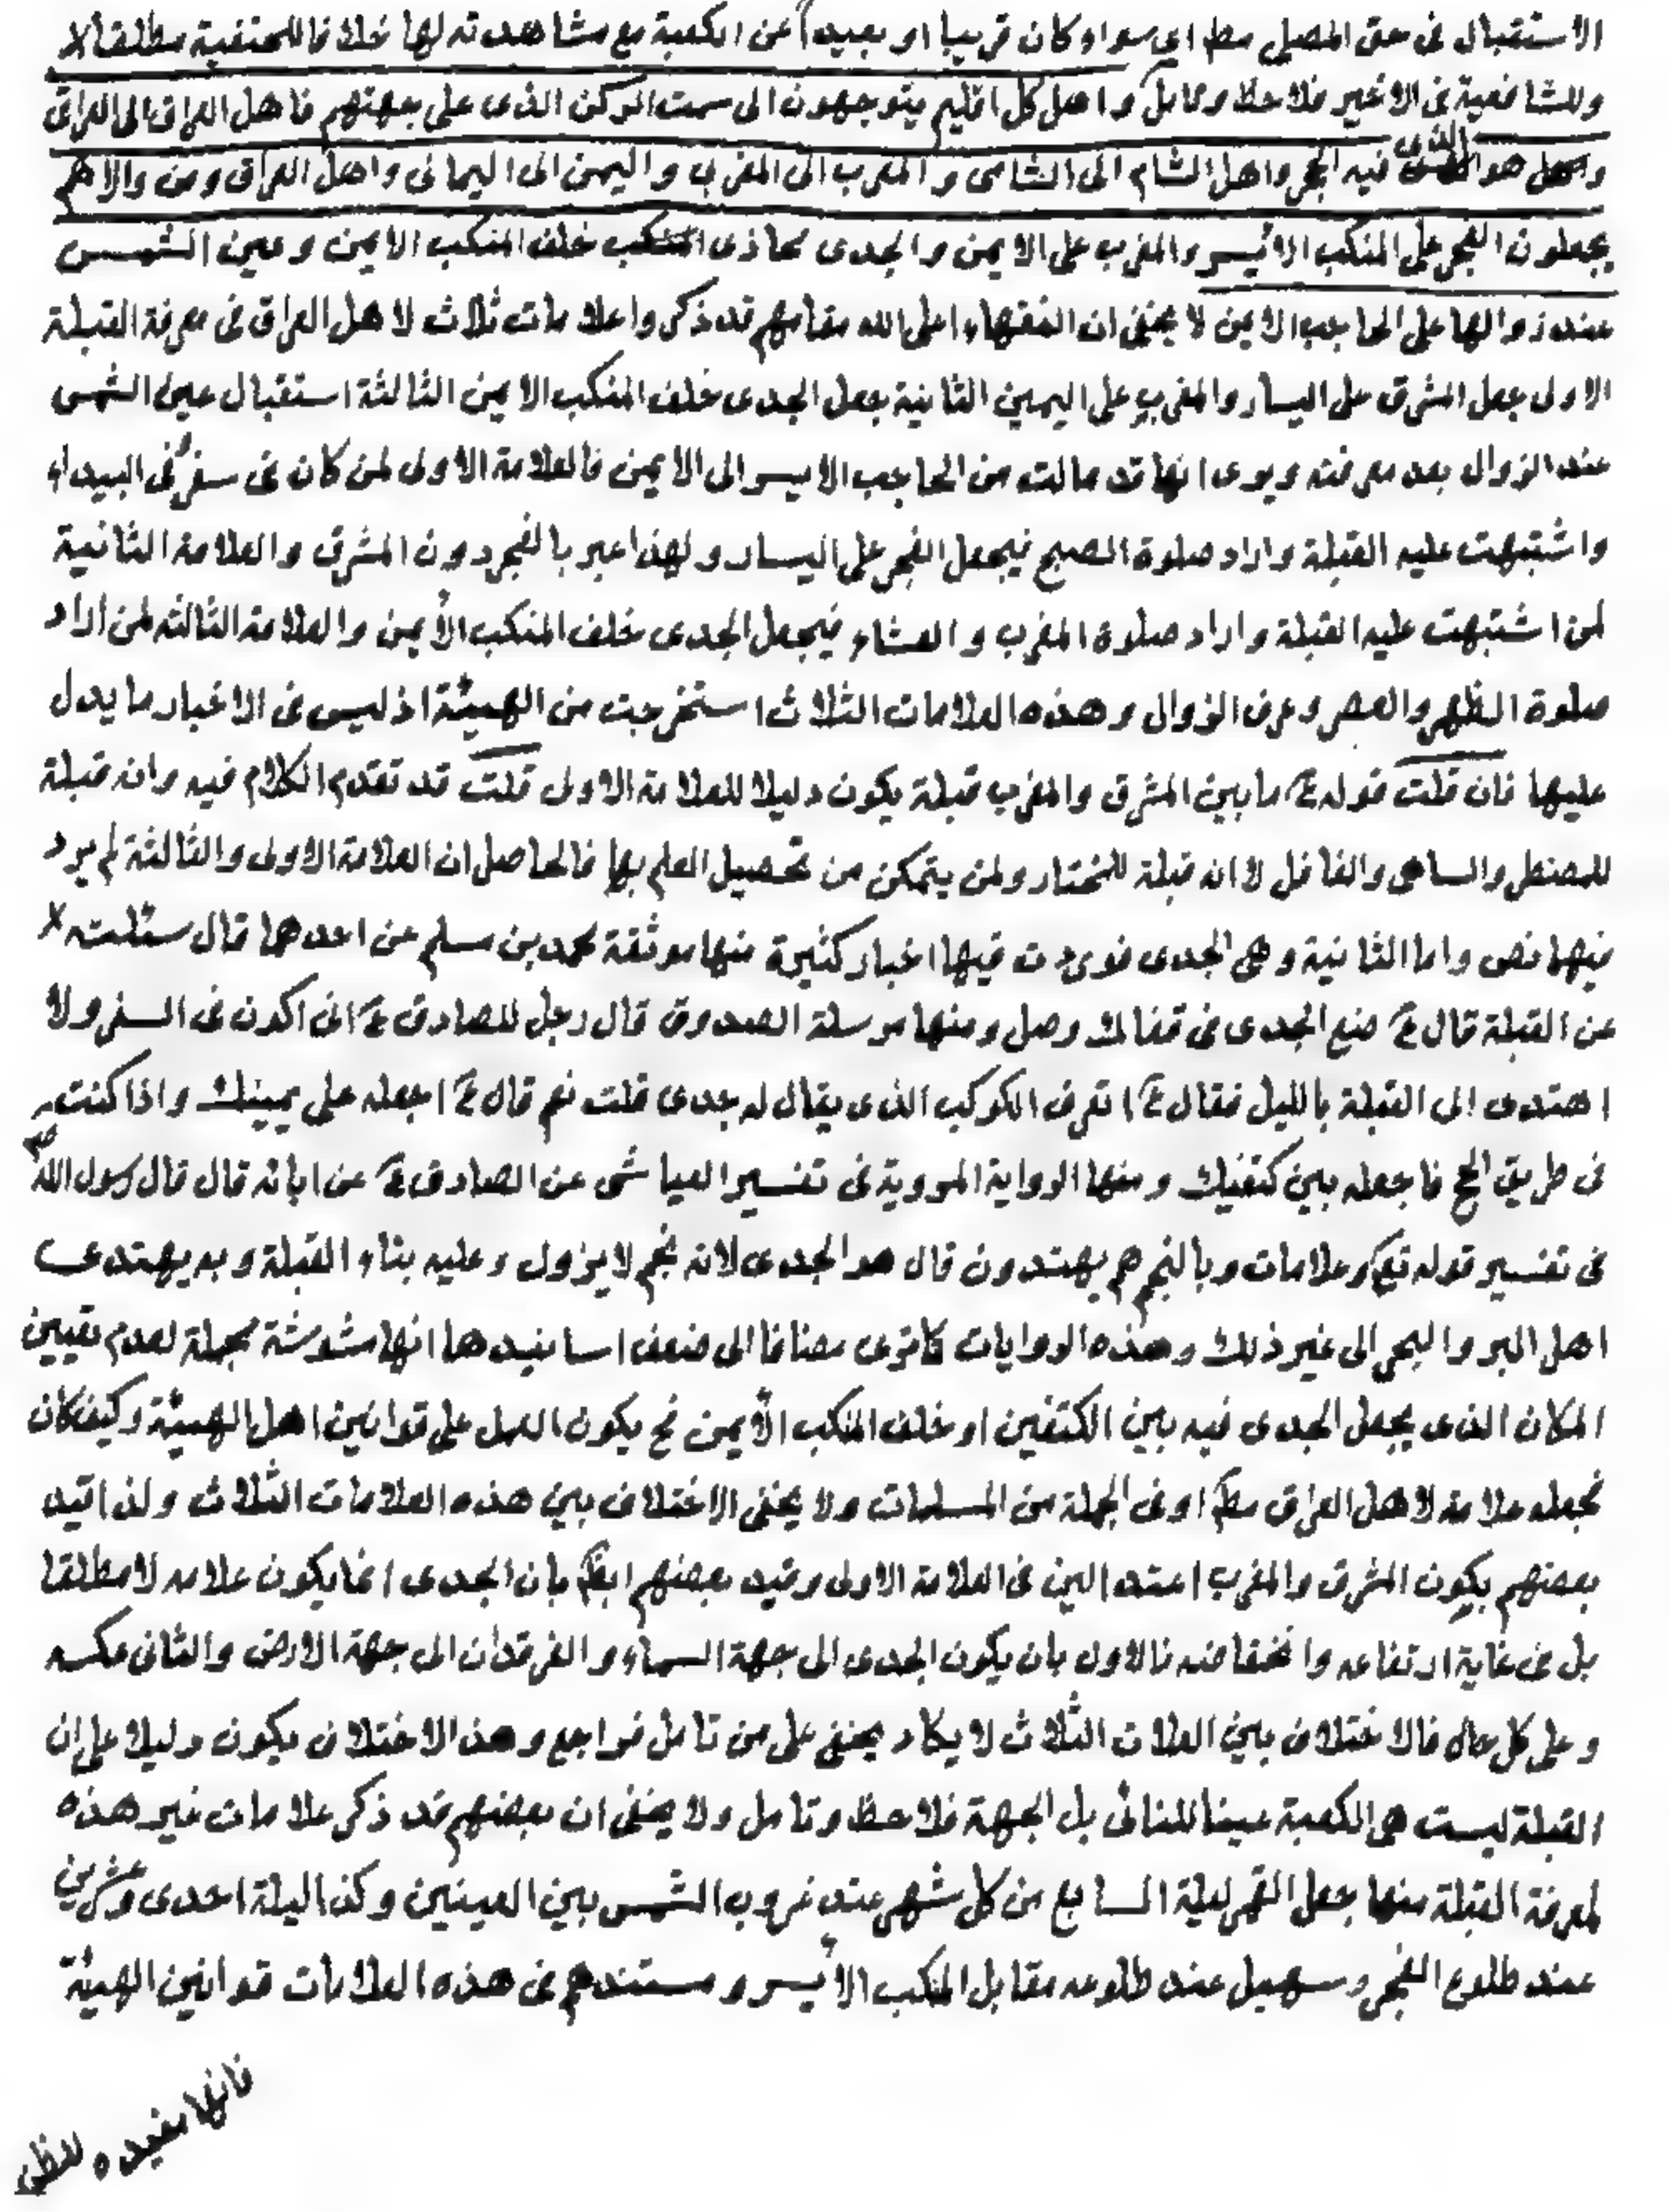 الاستقبال فى حق المصلى مط اى سواء كان قريبا او بعيدا عن الكعبة مع مشاهدته لها خلافا للحنفية مطلقا لا
وللشافعية فى الاخير فلاحظ وتامل واهل كل اقليم يتوجهون الى سمت الركن الذى على جهتهم فاهل العراق الى العراقى
وهو الذى فيه الحجر واهل الشام الى الشامى و المغرب الى المغربى واليمن الى اليمانى واهل العراق ومن والاهم
يجعلون الفجر على المنكب الايسر والمغرب على الايمن والجدى محاذى المنكب خلف المنكب الايمن وعين الشمس
عند زوالها على الحاجب الايمن لا يخفى ان الفقهاء اعلى الله مقامهم قد ذكروا علامات ثلاث لاهل العراق فى معرفة القبلة
الاولى جعل المشرق على اليسار والمغرب على اليمين الثانية جعل الجدى خلف المنكب الايمن الثالثة استقبال عين الشمس
عند الزوال بعد معرفته ويرى انها قد مالت من الحاجب الايسر الى الايمن فالعلامة الاولى لمن كان فى سفر فى البيداء
واشتبهت عليه القبلة واراد صلوة الصبح فيجعل الفجر على اليسار ولهذا عبر بالفجر دون المشرق والعلامة الثانية
لمن اشتبهت عليه القبلة واراد صلوة المغرب و العشاء فيجعل الجدى خلف المنكب الأيمن والعلامة الثالثه لمن اراد
صلوة الظهر والعصر وعرف الزوال وهذه العلامات الثلاث استخرجت من الهيئة اذ ليس فى الاخبار ما يدل
عليها فان قلت قوله ع ما بين المشرق والمغرب قبلة يكون دليلا للعلامة الاولى قلت قد تقدم الكلام فيه وانه قبلة
للمضطر والساهى والغافل لا انه قبلة للمختار ولمن يتمكن من تحصيل العلم بها فالحاصل ان العلامة الاولى والثالثة لم يرد
فيها نص واما الثانية وهى الجدى فورد ت فيها اخبار كثيرة منها موثقة محمد بن مسلم عن احدهما قال سئلته
عن القبلة قال ع ضع الجدى فى قفالك وصل ومنها مرسلة الصدوق قال رجل للصادق ع انى اكون فى السفر ولا
اهتدى الى القبلة بالليل فقال ع اتعرف الكوكب الذى يقال له جدى قلت نعم قال ع اجعله على يمينك واذا كنت
فى طريق الحج فاجعله بين كتفيك ومنها الرواية المروية فى تفسير العياشى عن الصادق ع عن ابائه قال قال رسول الله صم
فى تفسير قوله تع وعلامات وبالنجم هم يهتدون قال هو الجدى لانه نجم لا يزول وعليه بناء القبلة وبه يهتدى
اهل البر والبحر الى غير ذلك وهذه الروايات كا ترى مضافا الى ضعف اسانيدها انها مشوشة مجملة لعدم تعيين
المكان الذى يجعل الجدى فيه بين الكتفين او خلف المنكب الأيمن فح يكون العمل على قوانين اهل الهيئة وكيف كان
فجعله علامة لاهل العراق مط او فى الجملة من المسلمات ولا يخفى الاختلاف بين هذه العلامات الثلاث ولذا قيد
بعضهم بكون المشرق والمغرب اعتدالين فى العلامة الاولى وقيد بعضهم ايض بان الجدى انما يكون علامه لا مطلقا
بل فى غاية ارتفاعه وانخفاضه فالاول بان يكون الجدى الى جهة السماء و الفرقدان الى جهة الارض والثانى عكسه
و على كل حال فالاختلاف بين العلات الثلاث لا يكاد يخفى على من تامل فراجع وهذا الاختلاف يكون دليلا على ان
القبلة ليست هى الكعبة عينا للنائى بل الجهة فلاحظ وتامل ولا يخفى ان بعضهم قد ذكر علامات غير هذه
لمعرفة القبلة منها جعل القمر ليلة السابع من كل شهر عند غروب الشمس بين العينين وكذا ليلة احدى وعشرين
عند طلوع الفجر وسهيل عند طلوعه مقابل المنكب الأيسر و مستندهم فى هذه العلامات قوانين الهيئة
فانها مفيدة للظن